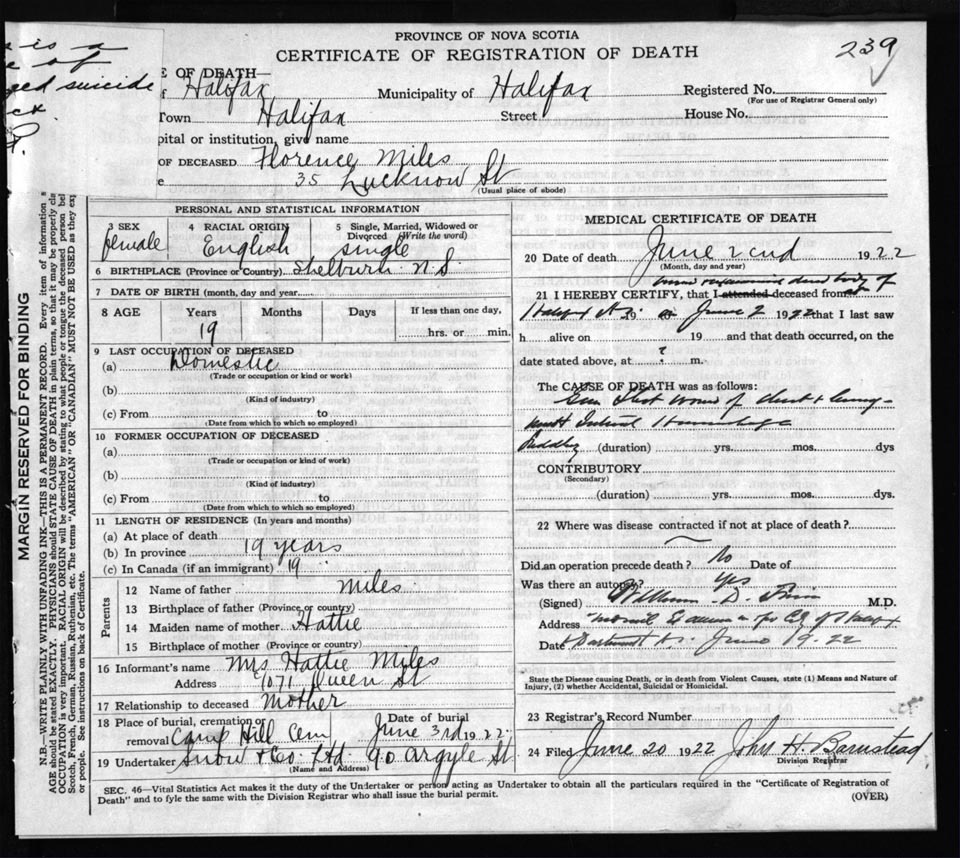 PROVINCE OF NOVA SCOTIA
CERTIFICATE OF REGISTRATION OF DEATH
239
is a
of
suicide
E OF DEATH—
f Halifax Municipality of Halifax Registered No.
(For use of Registrar General only)
Town Halifax Street House No.
pital or institution, give name
OF DECEASED Florence Miles
e 35 Lucknow St
(Usual place of abode)
MARGIN RESERVED FOR BINDING
N.B.—WRITE PLAINLY WITH UNFADING INK—THIS IS A PERMANENT RECORD. Every item of information s
AGE should be stated EXACTLY. PHYSICIANS should STATE CAUSE OF DEATH in plain terms, so that it may be properly cla
OCCUPATION is very important. RACIAL ORIGIN will be described by stating to what people or tongue the deceased person bel
Scotch, French, German, Russian, Ruthenian, etc. The terms "AMERICAN" OR "CANADIAN" MUST NOT BE USED as they exp
or people. See instructions on back of Certificate.
PERSONAL AND STATISTICAL INFORMATION
3 SEX 4 RACIAL ORIGIN 5 Single, Married, Widowed or
Divorced (Write the word)
female English single
6 BIRTHPLACE (Province or Country) Shelburn N.S.
7 DATE OF BIRTH (month, day and year)
8 AGE Years Months Days If less than one day,
19 hrs. or min.
9 LAST OCCUPATION OF DECEASED
(a) Domestic
(Trade or occupation or kind or work)
(b)
(Kind of industry)
(c) From to
(Date from which to which so employed)
10 FORMER OCCUPATION OF DECEASED
(a)
(Trade or occupation or kind or work)
(b)
(Kind of industry)
(c) From to
(Date from which to which so employed)
11 LENGTH OF RESIDENCE (In years and months)
(a) At place of death
(b) In province 19 years
(c) In Canada (if an immigrant) 19
Parents
12 Name of father Miles
13 Birthplace of father (Province or country)
14 Maiden name of mother Hattie
15 Birthplace of mother (Province or country)
16 Informant's name Mrs Hattie Miles
Address 1071 Queen St
17 Relationship to deceased Mother
18 Place of burial, cremation or Date of burial
removal Camp Hill Cem June 3rd 1922
19 Undertaker Snow & Co. Ltd 90 Argyle St
(Name and Address)
MEDICAL CERTIFICATE OF DEATH
20 Date of death June 2nd 1922
(Month, day and year)
dead body of
21 I HEREBY CERTIFY, that I attended deceased from
19 June 2 1922 that I last saw
h alive on 19 and that death occurred, on the
date stated above, at ? m.
The CAUSE OF DEATH was as follows:
Gun Shot wound of chest &
Internal Hemorrhage
(duration) yrs. mos. dys
CONTRIBUTORY
(Secondary)
(duration) yrs. mos. dys.
22 Where was disease contracted if not at place of death?
Did an operation precede death? No Date of
Was there an autopsy? Yes
(Signed) William D. M.D.
Address
Date June 1922
State the Disease causing Death, or in death from Violent Causes, state (1) Means and Nature of
Injury, (2) whether Accidental, Suicidal or Homicidal.
23 Registrar's Record Number
24 Filed June 20 1922 John H. Barnstead
Division Registrar
SEC. 46—Vital Statistics Act makes it the duty of the Undertaker or person acting as Undertaker to obtain all the particulars required in the "Certificate of Registration of
Death" and to fyle the same with the Division Registrar who shall issue the burial permit. (OVER)